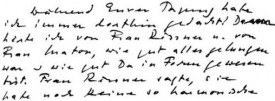 während Eurer Tagung habe
ich immer dorthin gedacht. Dann
hörte ich von Frau Rössner u. von
Frau Marton, wie gut alles gelungen
war u wie gut Du in Form gewesen
bist. Frau Rössner sagte, sie
habe noch keine so harmonische